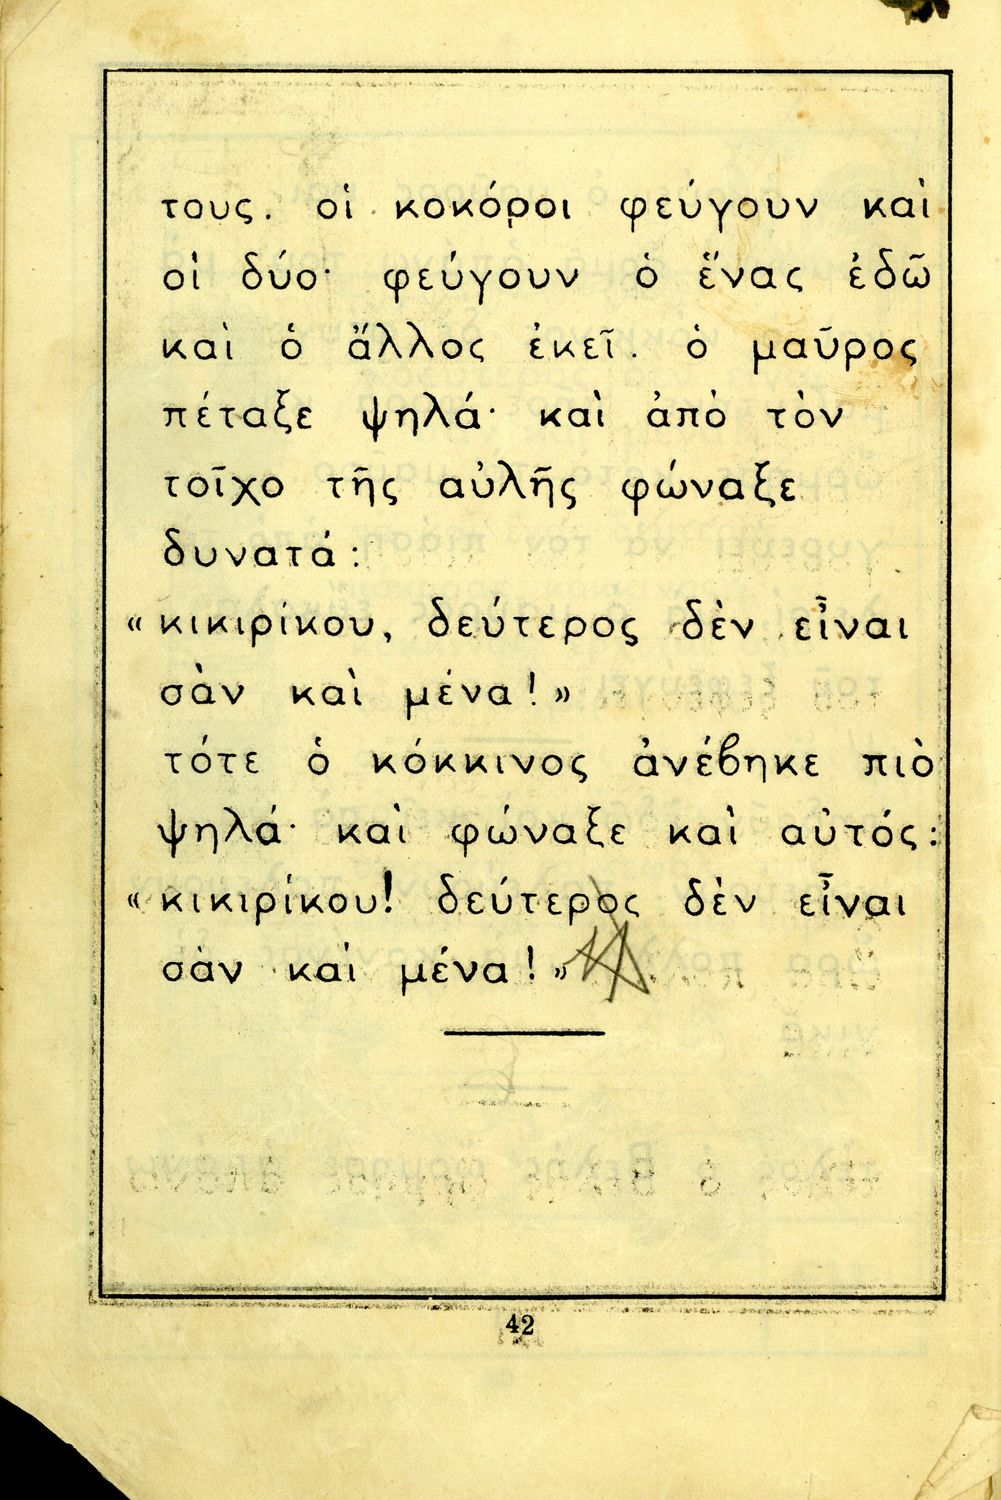 τους. οἱ κοκόροι φεύγουν καὶ
οἱ δύο· φεύγουν ὁ ἕνας ἐδῶ
καὶ ὁ ἄλλος ἐκεῖ. ὁ μαῦρος
πέταξε ψηλά· καὶ ἀπὸ τὸν
τοῖχο τῆς αὐλῆς φώναξε
δυνατά:
«κικιρίκου, δεύτερος δὲν εἶναι
σὰν καὶ μένα!»
τότε ὁ κόκκινος ἀνέβηκε πιὸ
ψηλά· καὶ φώναξε καὶ αὐτός:
«κικιρίκου! δεύτερος δὲν εἶναι
σὰν καὶ μένα!»
42